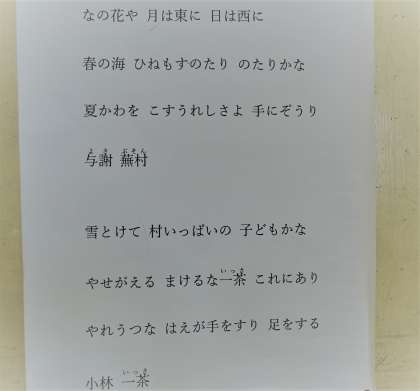 なの花や 月は東に 日は西に
春の海 ひねもすのたり のたりかな
夏かわを こすうれしさよ 手にぞうり
与謝 蕪村
雪とけて 村いっぱいの 子どもかな
やせがえる まけるな一茶 これにあり
やれうつな はえが手をすり 足をする
小林 一茶